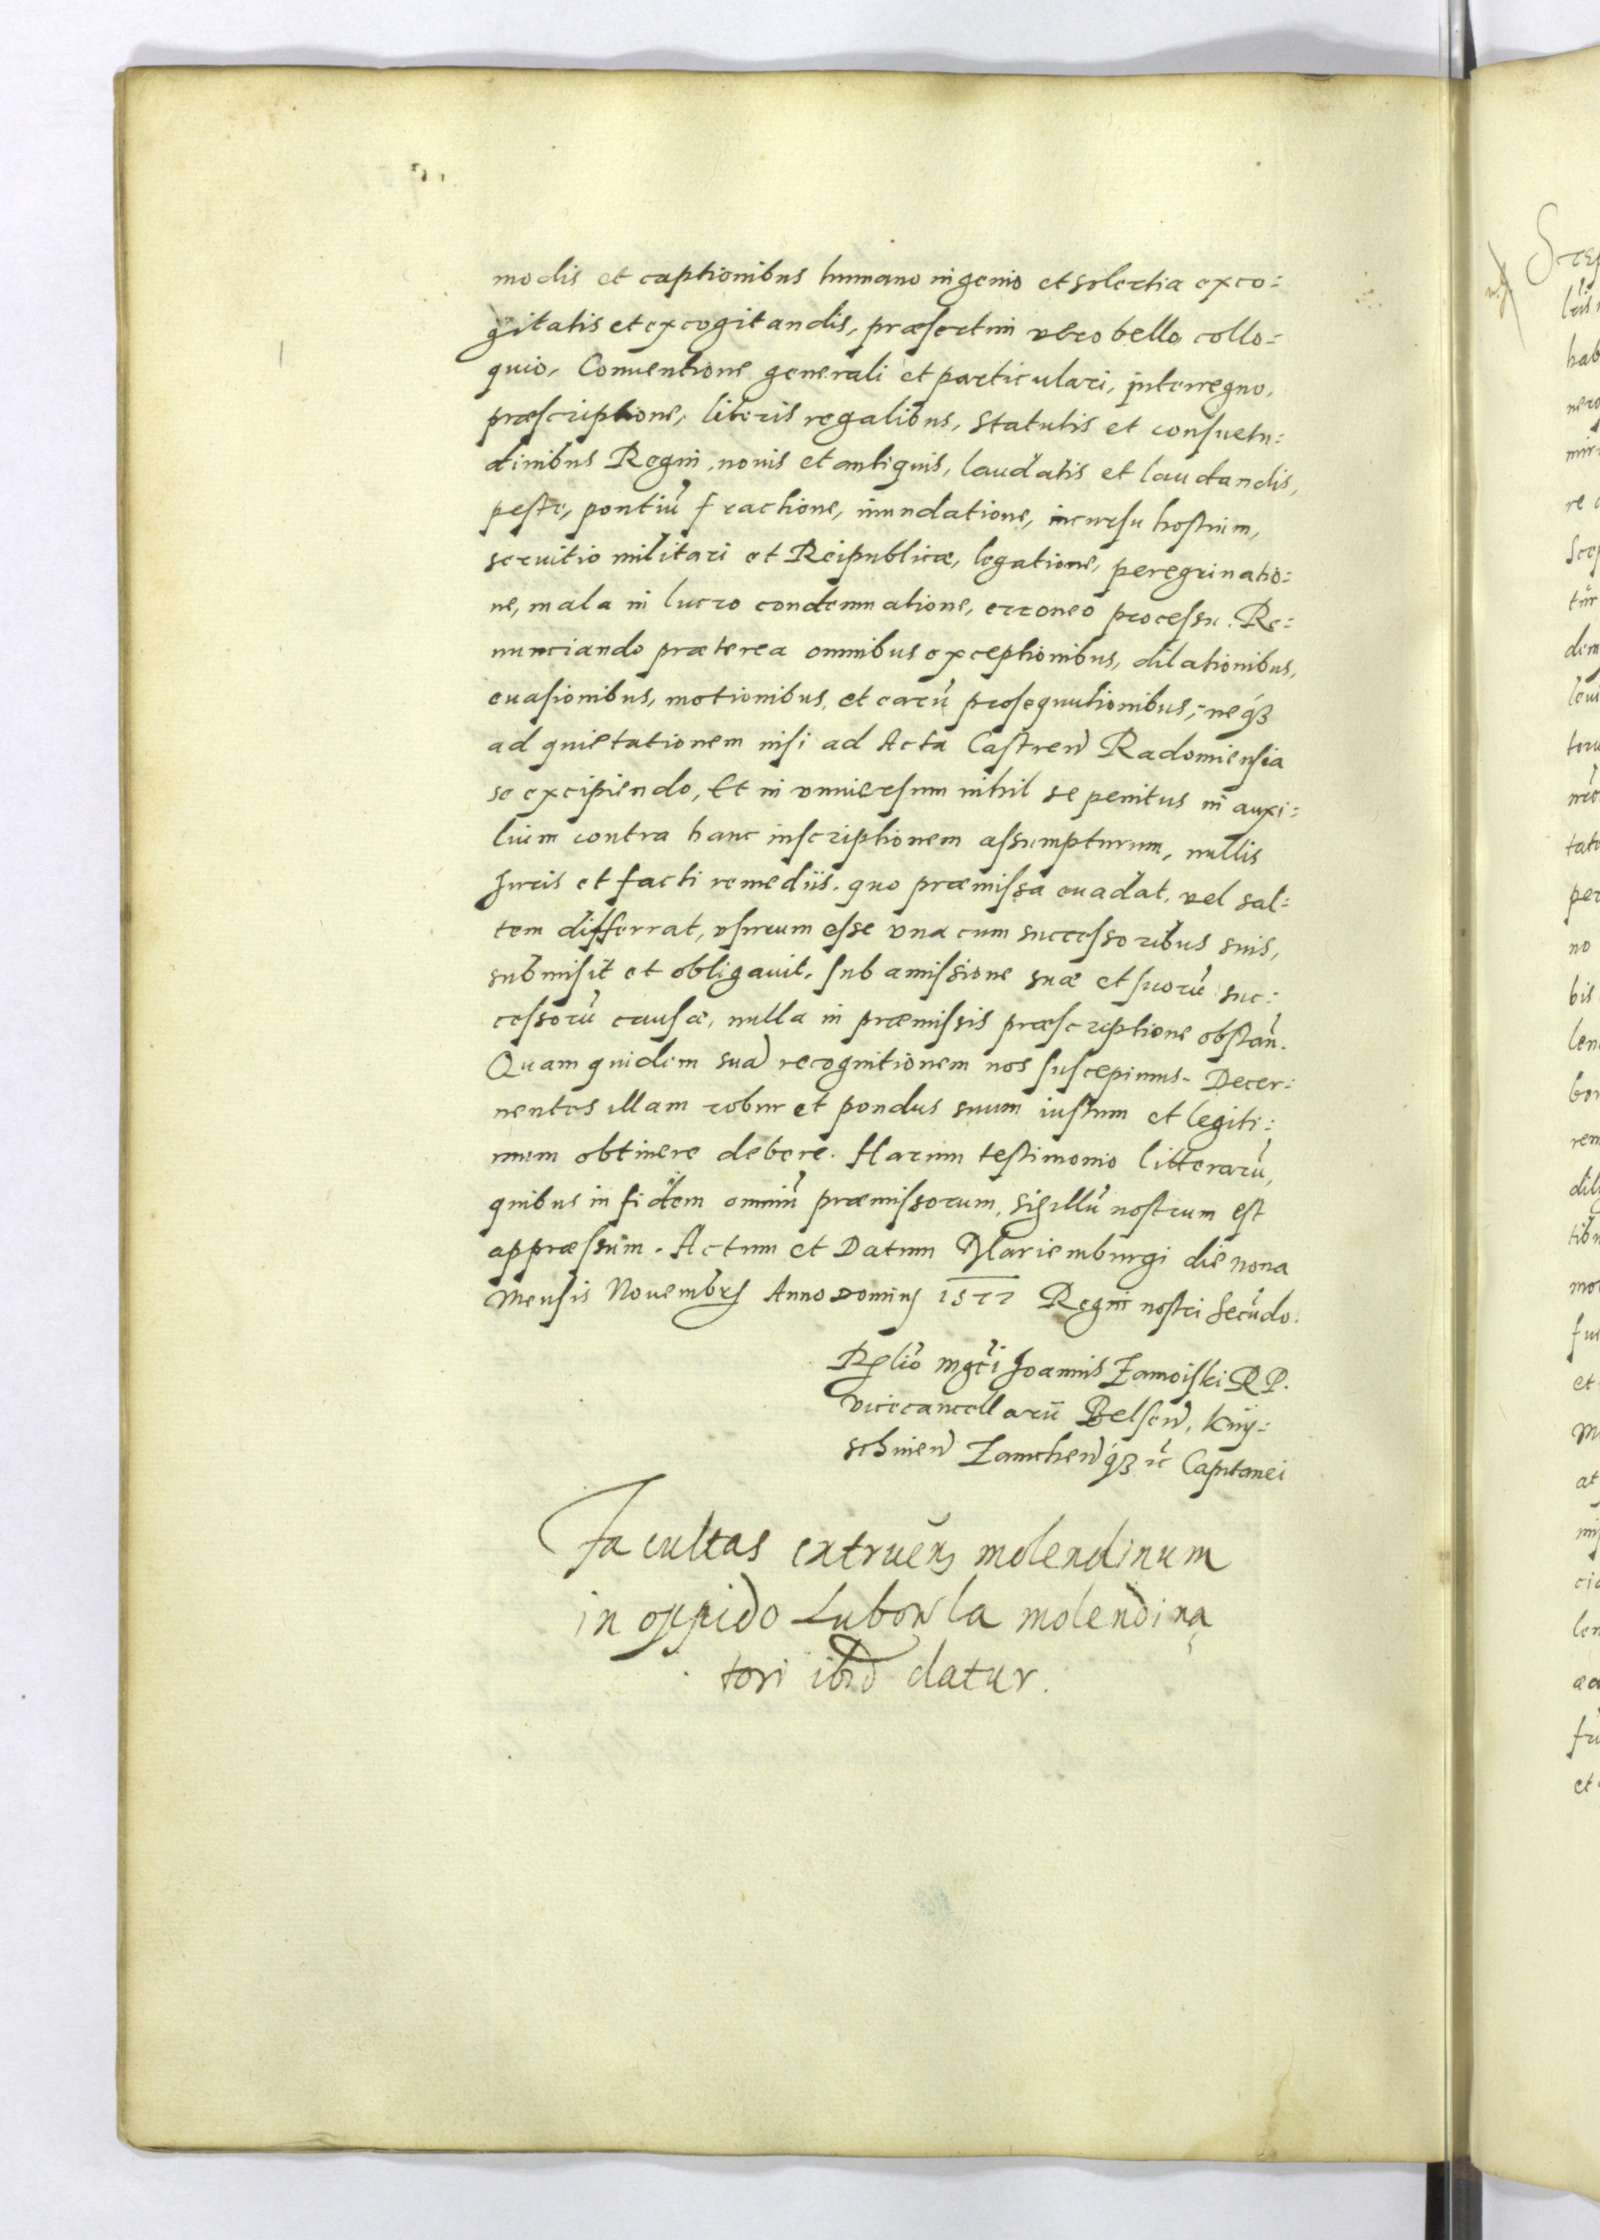 modis et captionibus humano ingenio et solertia exco:
gitatis et excogitandis, præsertim vero bello collo:
quio, Conventione generali et particulari, interregno,
præscriptione, literis regalibus, statutis et consuetu:
dinibus Regni, novis et antiquis, laudatis et laudandis,
peste, pontiũ fractione, inundatione, incursu hostium,
servitio militari et Reipublicæ, legatione, peregrinatio:
ne, mala in lucro condemnatione, erroneo processu. Re:
nunciando præterea omnibus exceptionibus, dilationibus,
evasionibus, motionibus, et earũ prosequutionibus, neqȝ
ad quietationem nisi ad Acta Castren Radomiensia
se excipiendo, Et in universum nihil se penitus in auxi:
lium contra hanc inscriptionem assumpturum, nullis
Juris et facti remediis, quo præmissa evadat, vel sal:
tem differrat, usurum esse una cum successoribus suis,
submisit et obligavit, sub amissione suæ et suorũ suc:
cessorũ causæ, nulla in præmissis præscriptione obstañ.
Quam quidem suã recognitionem nos suscepimus. Decer:
nentes illam robur et pondus suum iustum et legiti:
mum obtinere debere. Harum testimonio litterarũ,
quibus in fidem omniũ præmissorum, sigillũ nostrum est
appræssum. Actum et Datum Mariemburgi die nona
Mensis Novembris Anno Domini 1577 Regni nostri secũdo.
Relio mgci Joannis Zamoiski R P.
vicecancellarii Belsen, Kniy:
schinen Zamchen qȝ ic Capitanei
Facultas extruen molendinum
in oppido Lubowla molendina
tori ibid datur.